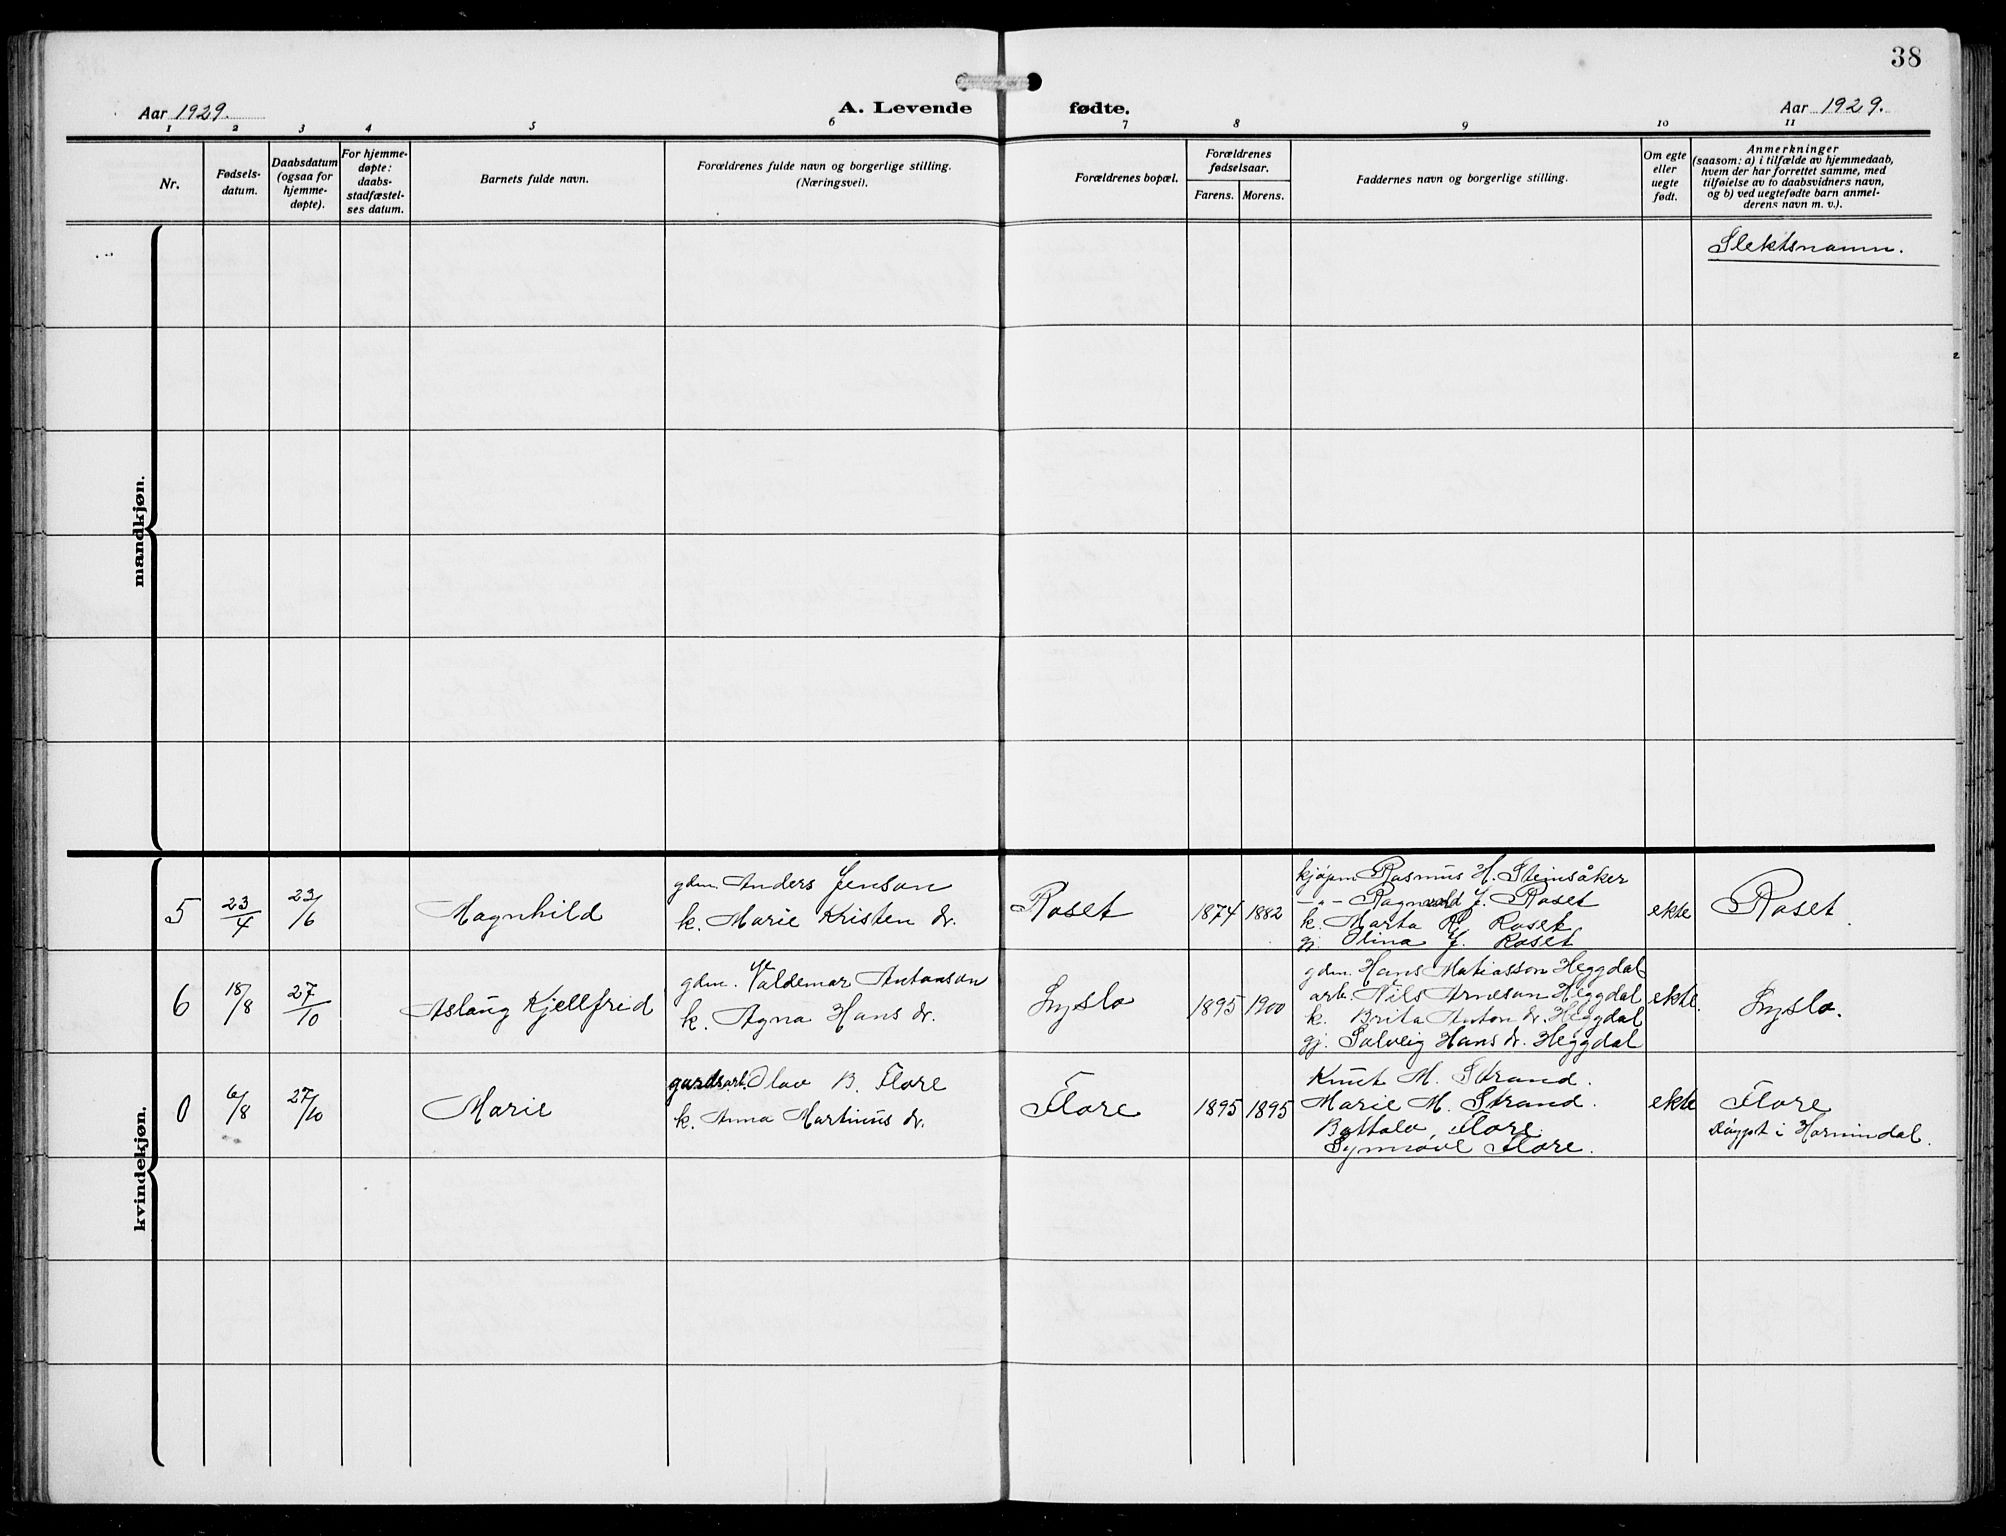 38
Aar 1929.
A. Levende fødte.
Aar 1929.
1 2 3 4 5 6 7 8 9 10 11
Nr.
Fødsels-
datum.
Daabsdatum
(ogsaa for
hjemme-
døpte).
For hjemme-
døpte:
daabs-
stadfæstel-
ses datum.
Barnets fulde navn.
Forældrenes fulde navn og borgerlige stilling.
(Næringsvei).
Forældrenes bopæl.
Forældrenes
fødselsaar.
Farens. Morens.
Faddernes navn og borgerlige stilling.
Om egte
eller
uegte
født.
Anmerkninger
(saasom: a) i tilfælde av hjemmedaab,
hvem der har forrettet samme, med
tilføielse av to daabsvidners navn,
og b) ved uegtefødte barn anmel-
derens navn m. v.).
Slektsnamn.
mandkjøn.
kvindekjøn.
5 23/4 23/6 Magnhild
gdm. Anders Jenson
k. Marie Kristen dr.
Roset 1874 1882
kjøpm. Rasmus H. Steinsåker
-"- Ragnvald J. Roset
k. Marta R. Roset
gj. Olina J. Roset
ekte Roset.
6 18/8 27/10 Aslaug Kjellfrid
gdm. Valdemar Antonson
k. Agna Hans dr.
Lyslo 1895 1900
gdm. Hans Matiasson Heggdal
arb. Nils Arneson Heggdal
k. Brita Anton dr. Heggdal
gj. Solveig Hans dr. Heggdal
ekte. Lyslo.
0 6/8 27/10 Marie
gardsarb. Olav B. Flore
k. Anna Martinus dr.
Flore 1895 1895
Knut M. Strand.
Marie M. Strand.
Bottolv Flore.
Synnøve Flore.
ekte Flore
Døypt i Hornindal.